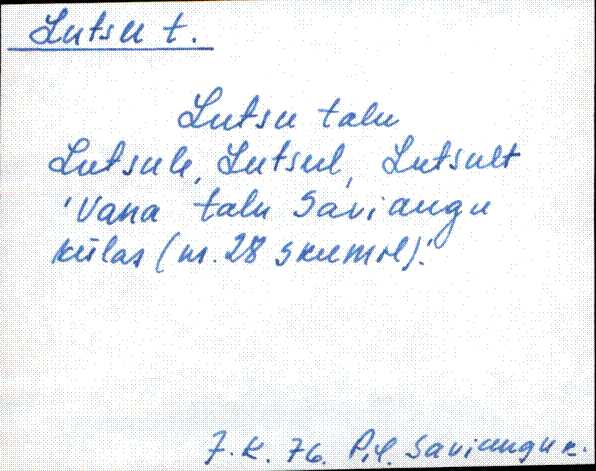 Lutsu t.
Lutsu talu
Lutsule, Lutsul, Lutsult
'Vana talu Saviaugu
külas (nr. 28 skeemil).'
J. K. 76. Pil. Saviaugu k.